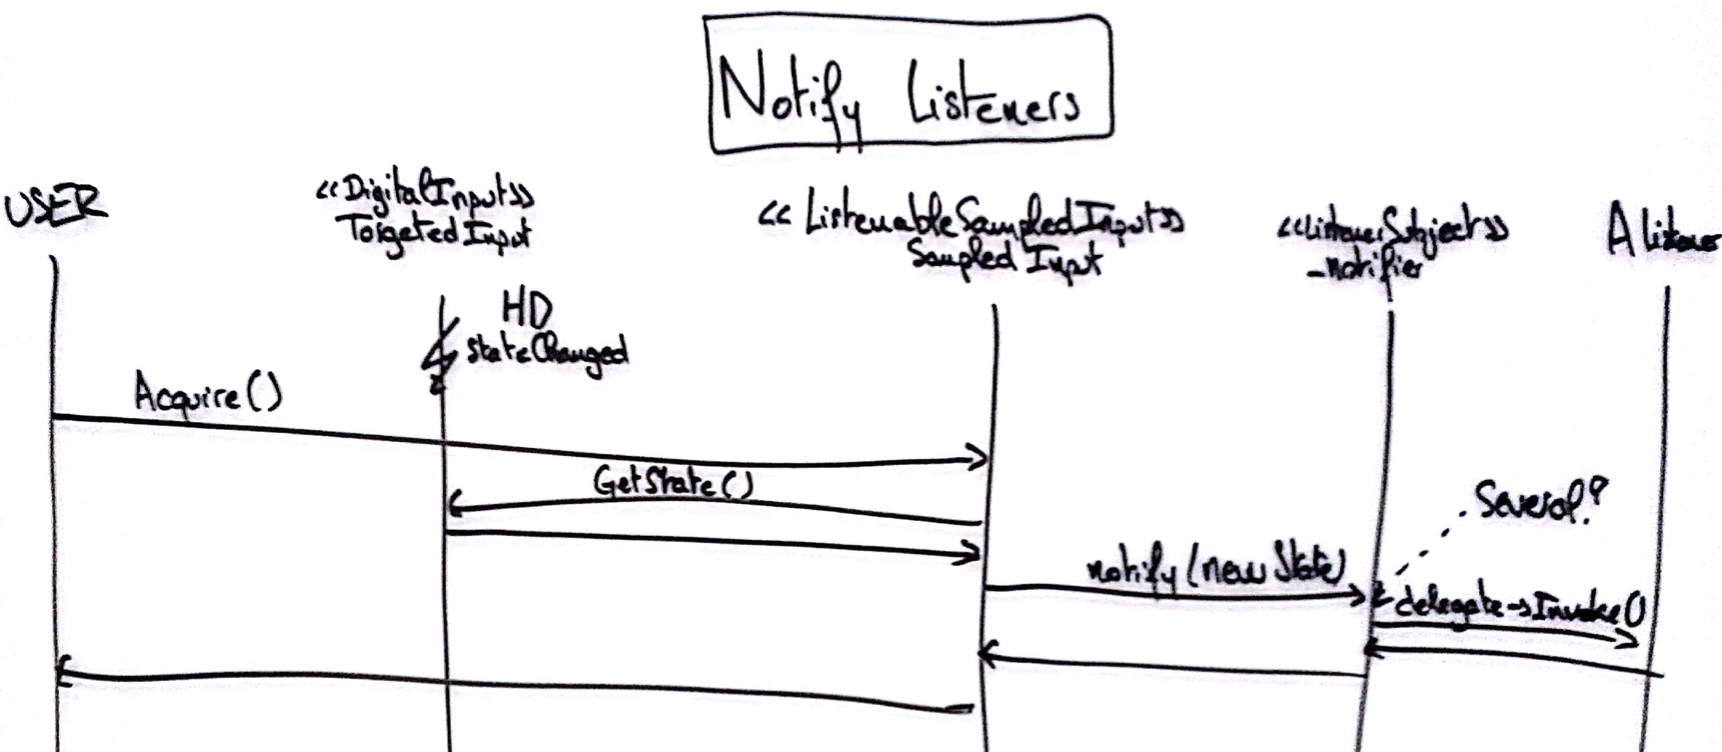 Notify Listeners
USER
<<DigitalInput>>
TargetedInput
<< ListenableSampledInput>>
Sampled Input
<<ListenerSubject>>
_notifier
A listener
HD
stateChanged
Acquire()
GetState()
Several?
notify(new State)
delegate→Invoke()